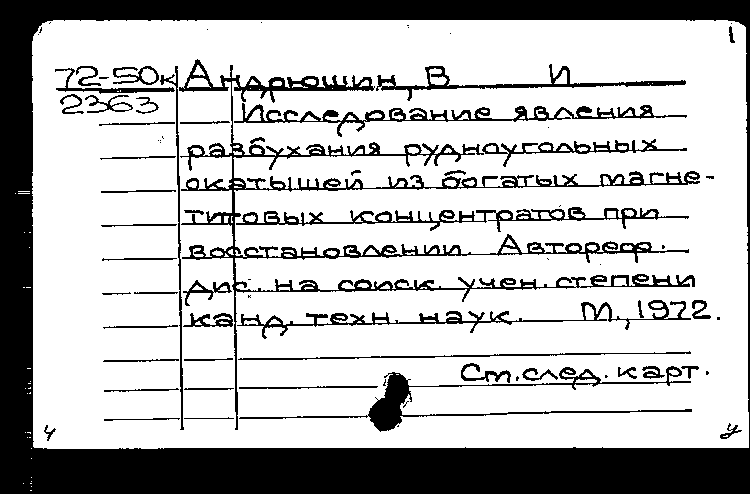 1
72-50к Андрюшин, В И
2363 Исследование явления
разбухания рудноугольных
окатышей из богатых магне-
титовых концентратов при
восстановлении. Автореф.
дис. на соиск. учен. степени
канд. техн. наук. М., 1972.
Ст. след. карт.
4 у